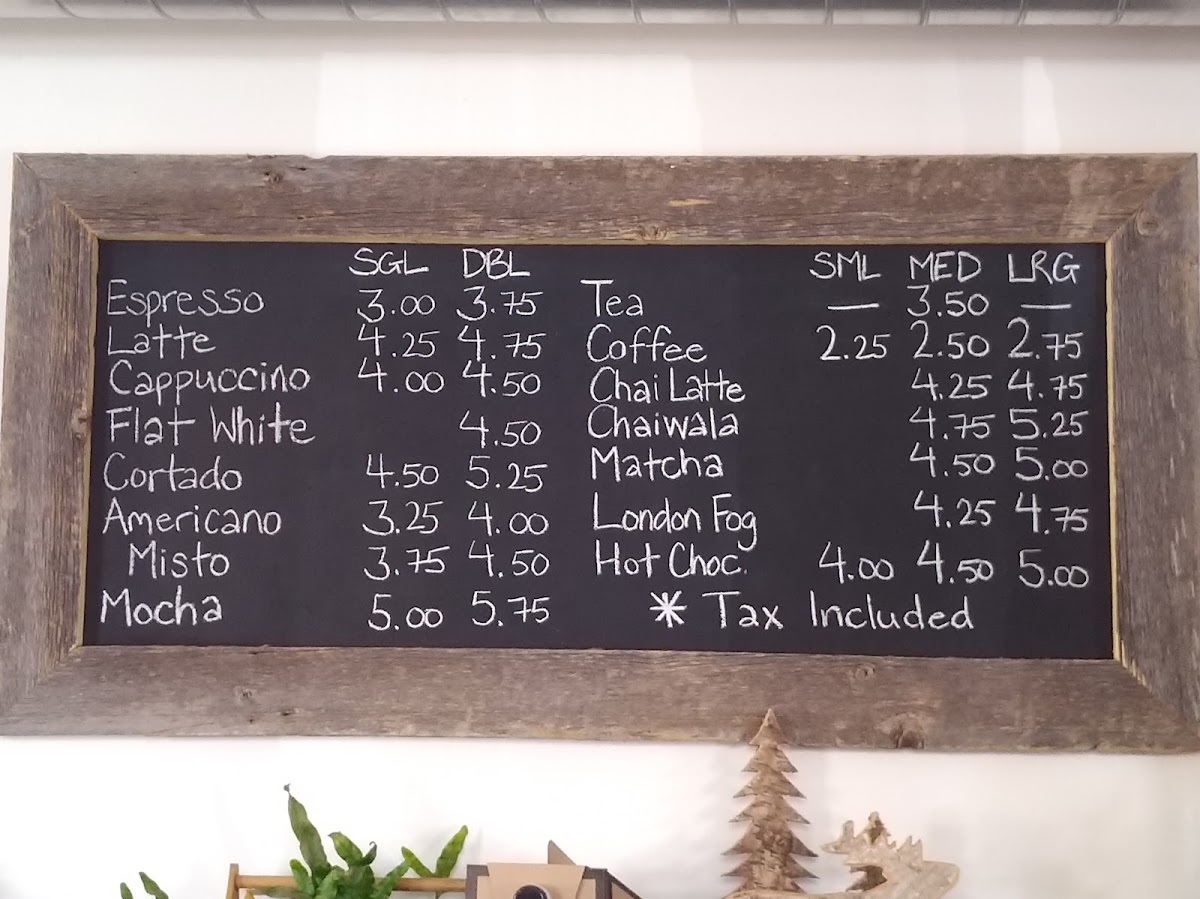 SGL DBL
Espresso 3.00 3.75
Latte 4.25 4.75
Cappuccino 4.00 4.50
Flat White 4.50
Cortado 4.50 5.25
Americano 3.25 4.00
Misto 3.75 4.50
Mocha 5.00 5.75
SML MED LRG
Tea — 3.50 —
Coffee 2.25 2.50 2.75
Chai Latte 4.25 4.75
Chaiwala 4.75 5.25
Matcha 4.50 5.00
London Fog 4.25 4.75
Hot Choc. 4.00 4.50 5.00
* Tax Included